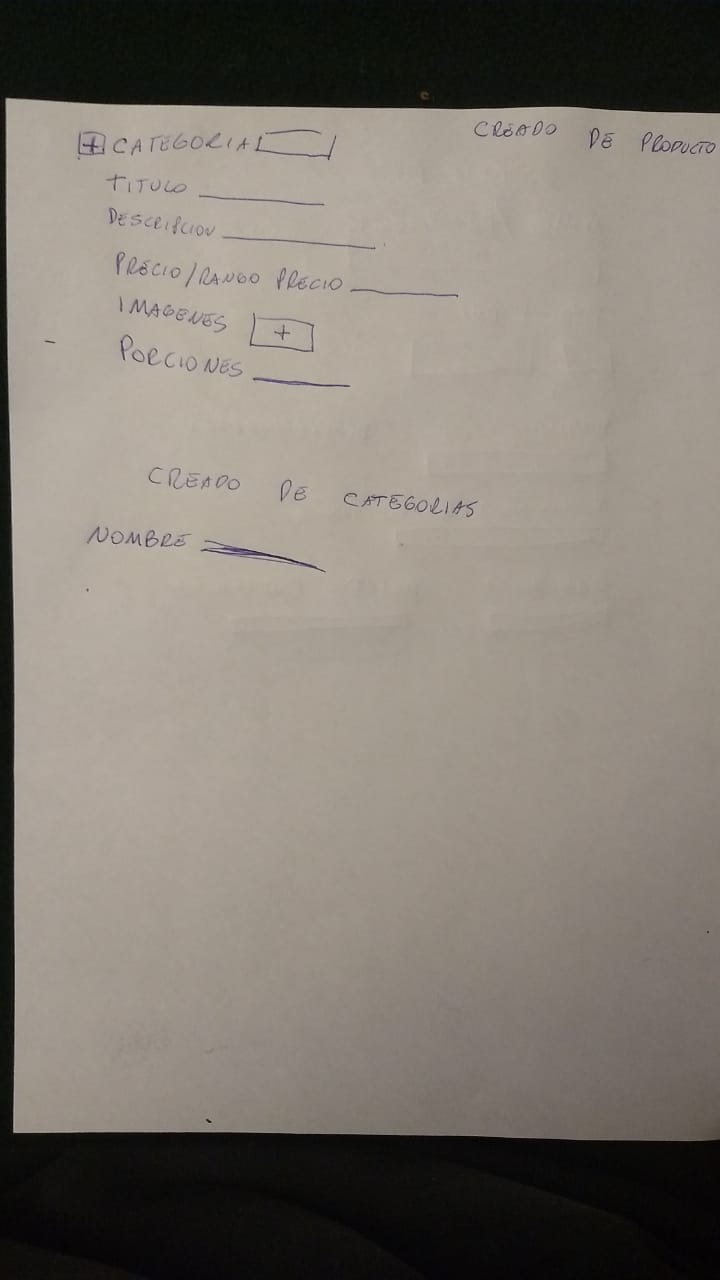 CREADO DE PRODUCTO
+ CATEGORIA
TITULO
DESCRIPCION
PRECIO/RANGO PRECIO
IMAGENES +
PORCIONES
CREADO DE CATEGORIAS
NOMBRE